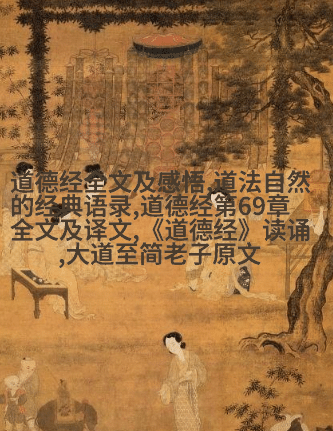 道德经全文及感悟,道法自然
的经典语录,道德经第69章
全文及译文,《道德经》读诵
,大道至简老子原文